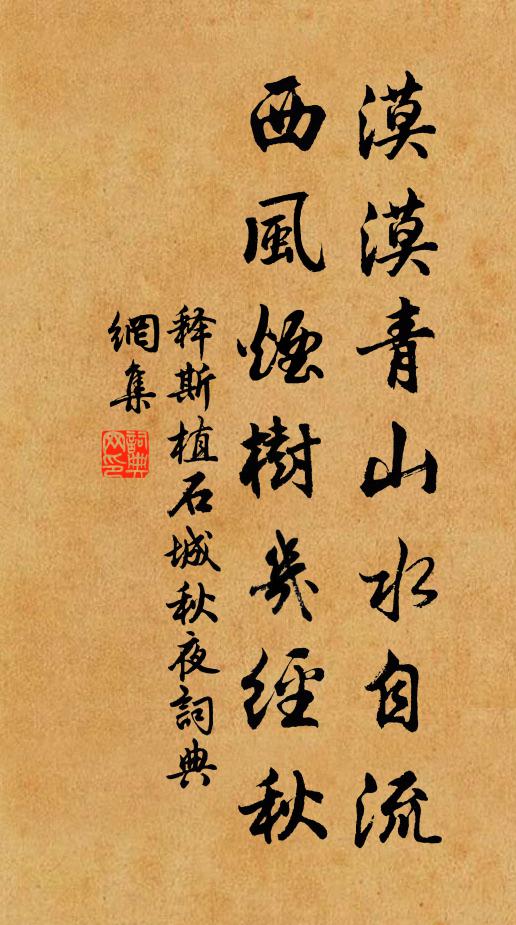 漠漠青山水自流
西風煙樹幾經秋
释斯植石城秋夜詞典
網集
詞典网印